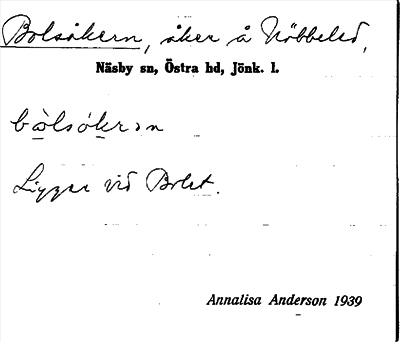 Bolsåkern, åker å Nöbbeled,
Näsby sn, Östra hd, Jönk. l.
bòlsókɘn
Ligger vid Bolet.
Annalisa Anderson 1939